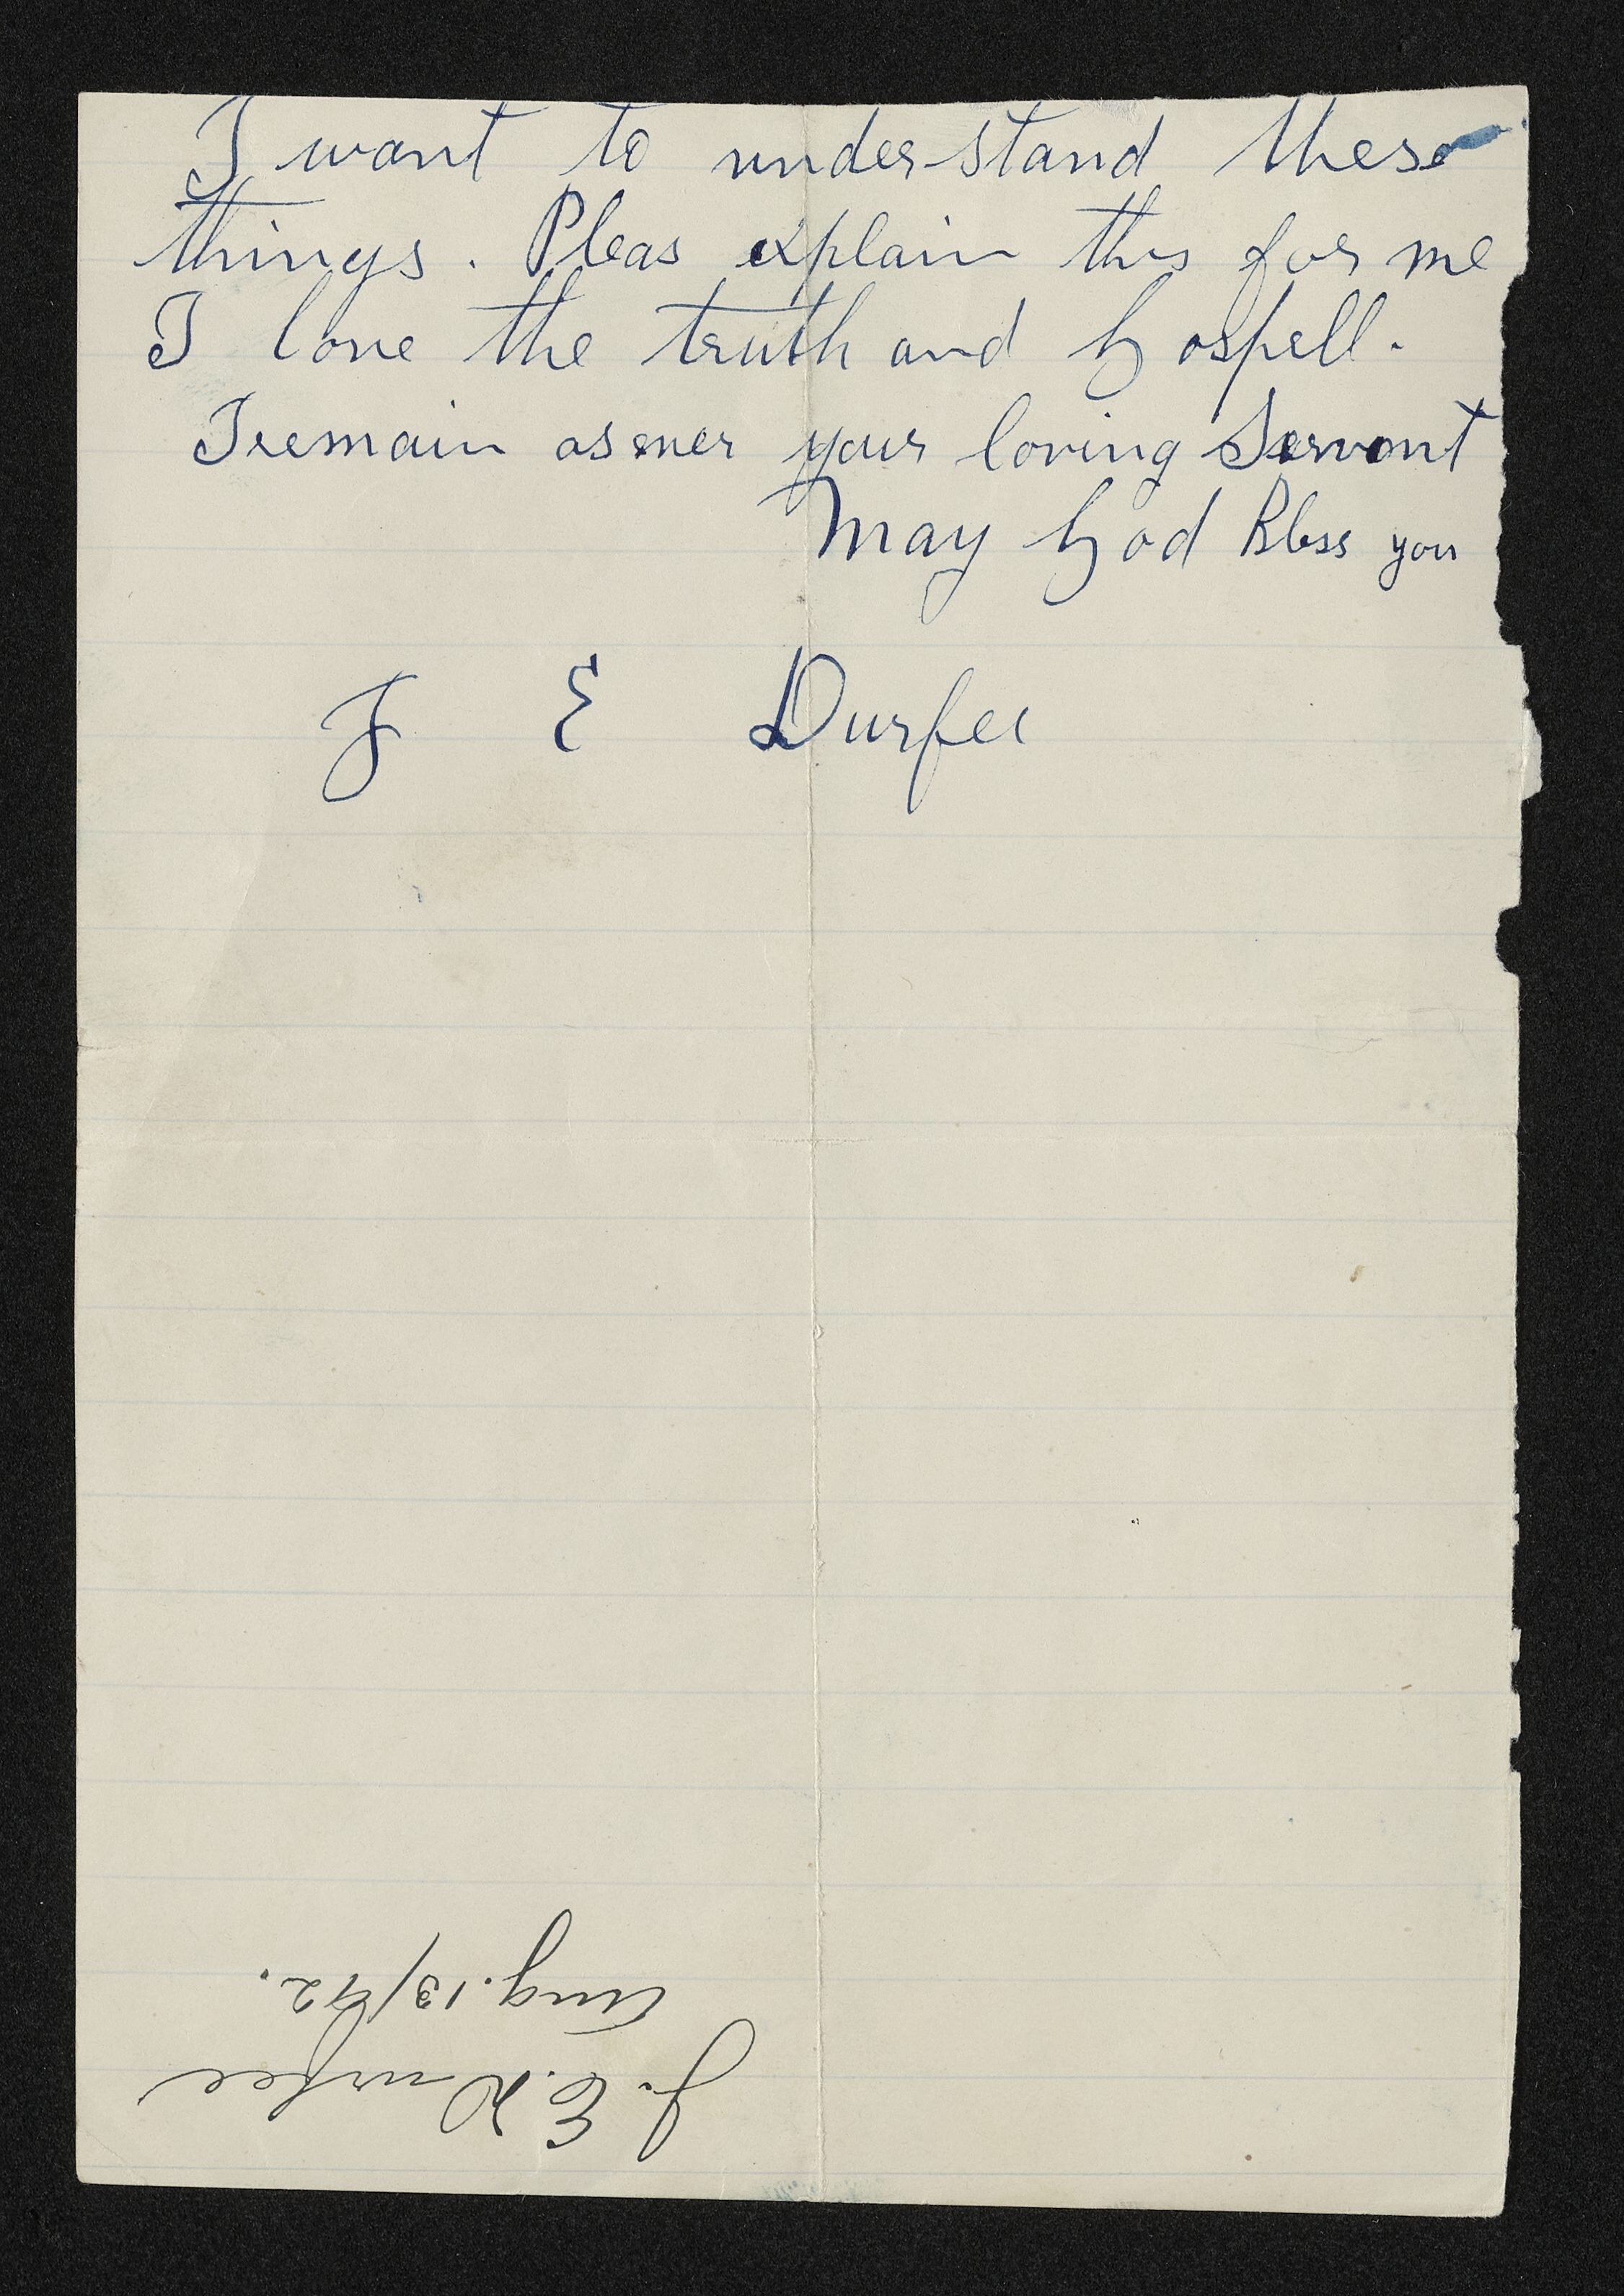 I want to under-stand these
things. Pleas explain this for me
I love the truth and Gospell.
I remain as ever your loving Servant
May God Bless you
J E Durfee
J. E. Durfee
Aug. 13/42.